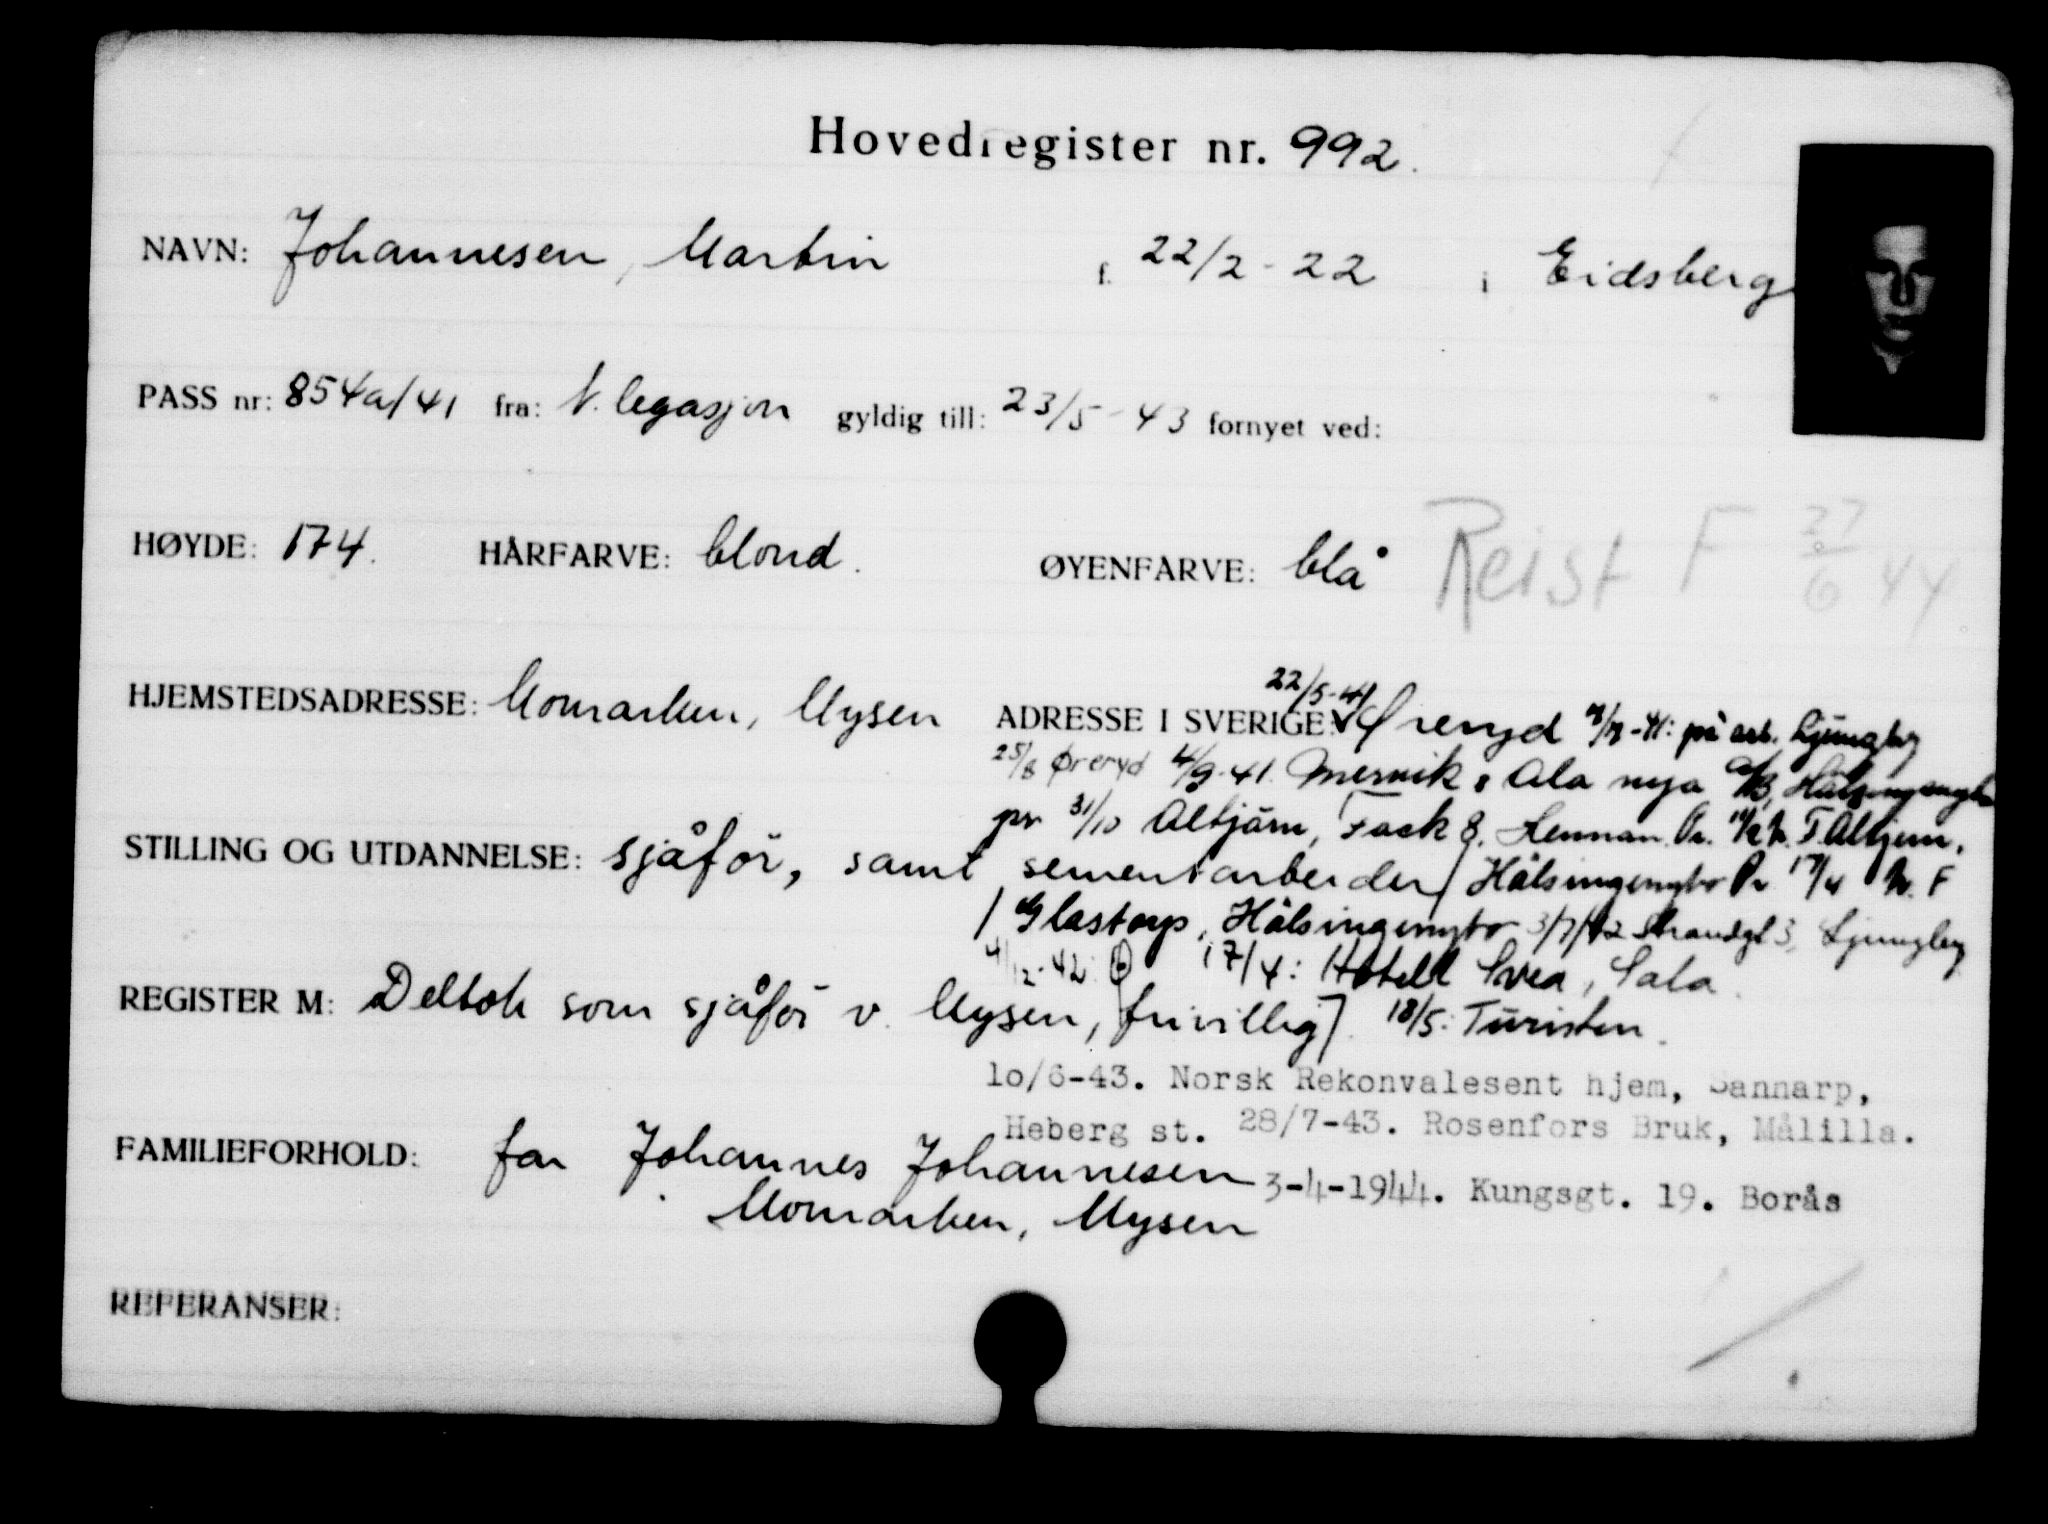 Hovedregister nr. 992.
NAVN: Johannesen, Martin f. 22/2-22 i Eidsberg
PASS nr: 854a/41 fra: N. legasjon gyldig till: 23/5-43 fornyet ved:
HØYDE: 174. HÅRFARVE: blond. ØYENFARVE: blå
Reist F 27/6 44
HJEMSTEDSADRESSE: Momarken, Mysen ADRESSE I SVERIGE: 22/5-41 Øreryd på arb. Ljungby
25/8 Øreryd 4/9-41. Ala nya A/B, Hälsingenybo
pr 31/10 Altjärn, Fack 8, Hennan.
STILLING OG UTDANNELSE: sjåfør, samt sementarbeider Hälsingenybo Pr 17/4 F
Glastorp, Hälsingenybo 3/7/42 Strandgt 3, Ljungby
4/12-42: 17/4: Hotell Svea, Sala.
REGISTER M: Deltok som sjåfør v. Mysen, frivillig 18/5: Turisten.
10/6-43. Norsk Rekonvalesent hjem, Sannarp,
Heberg st. 28/7-43. Rosenfors Bruk, Målilla.
FAMILIEFORHOLD: far Johannes Johannesen
3-4-1944. Kungsgt. 19. Borås
Momarken, Mysen
REFERANSER: